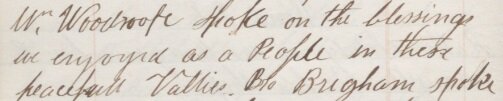 Wm Woodroofe spoke on the blessings
we enjoyed as a People in these
peacefull Vallies. Bro Brigham spoke